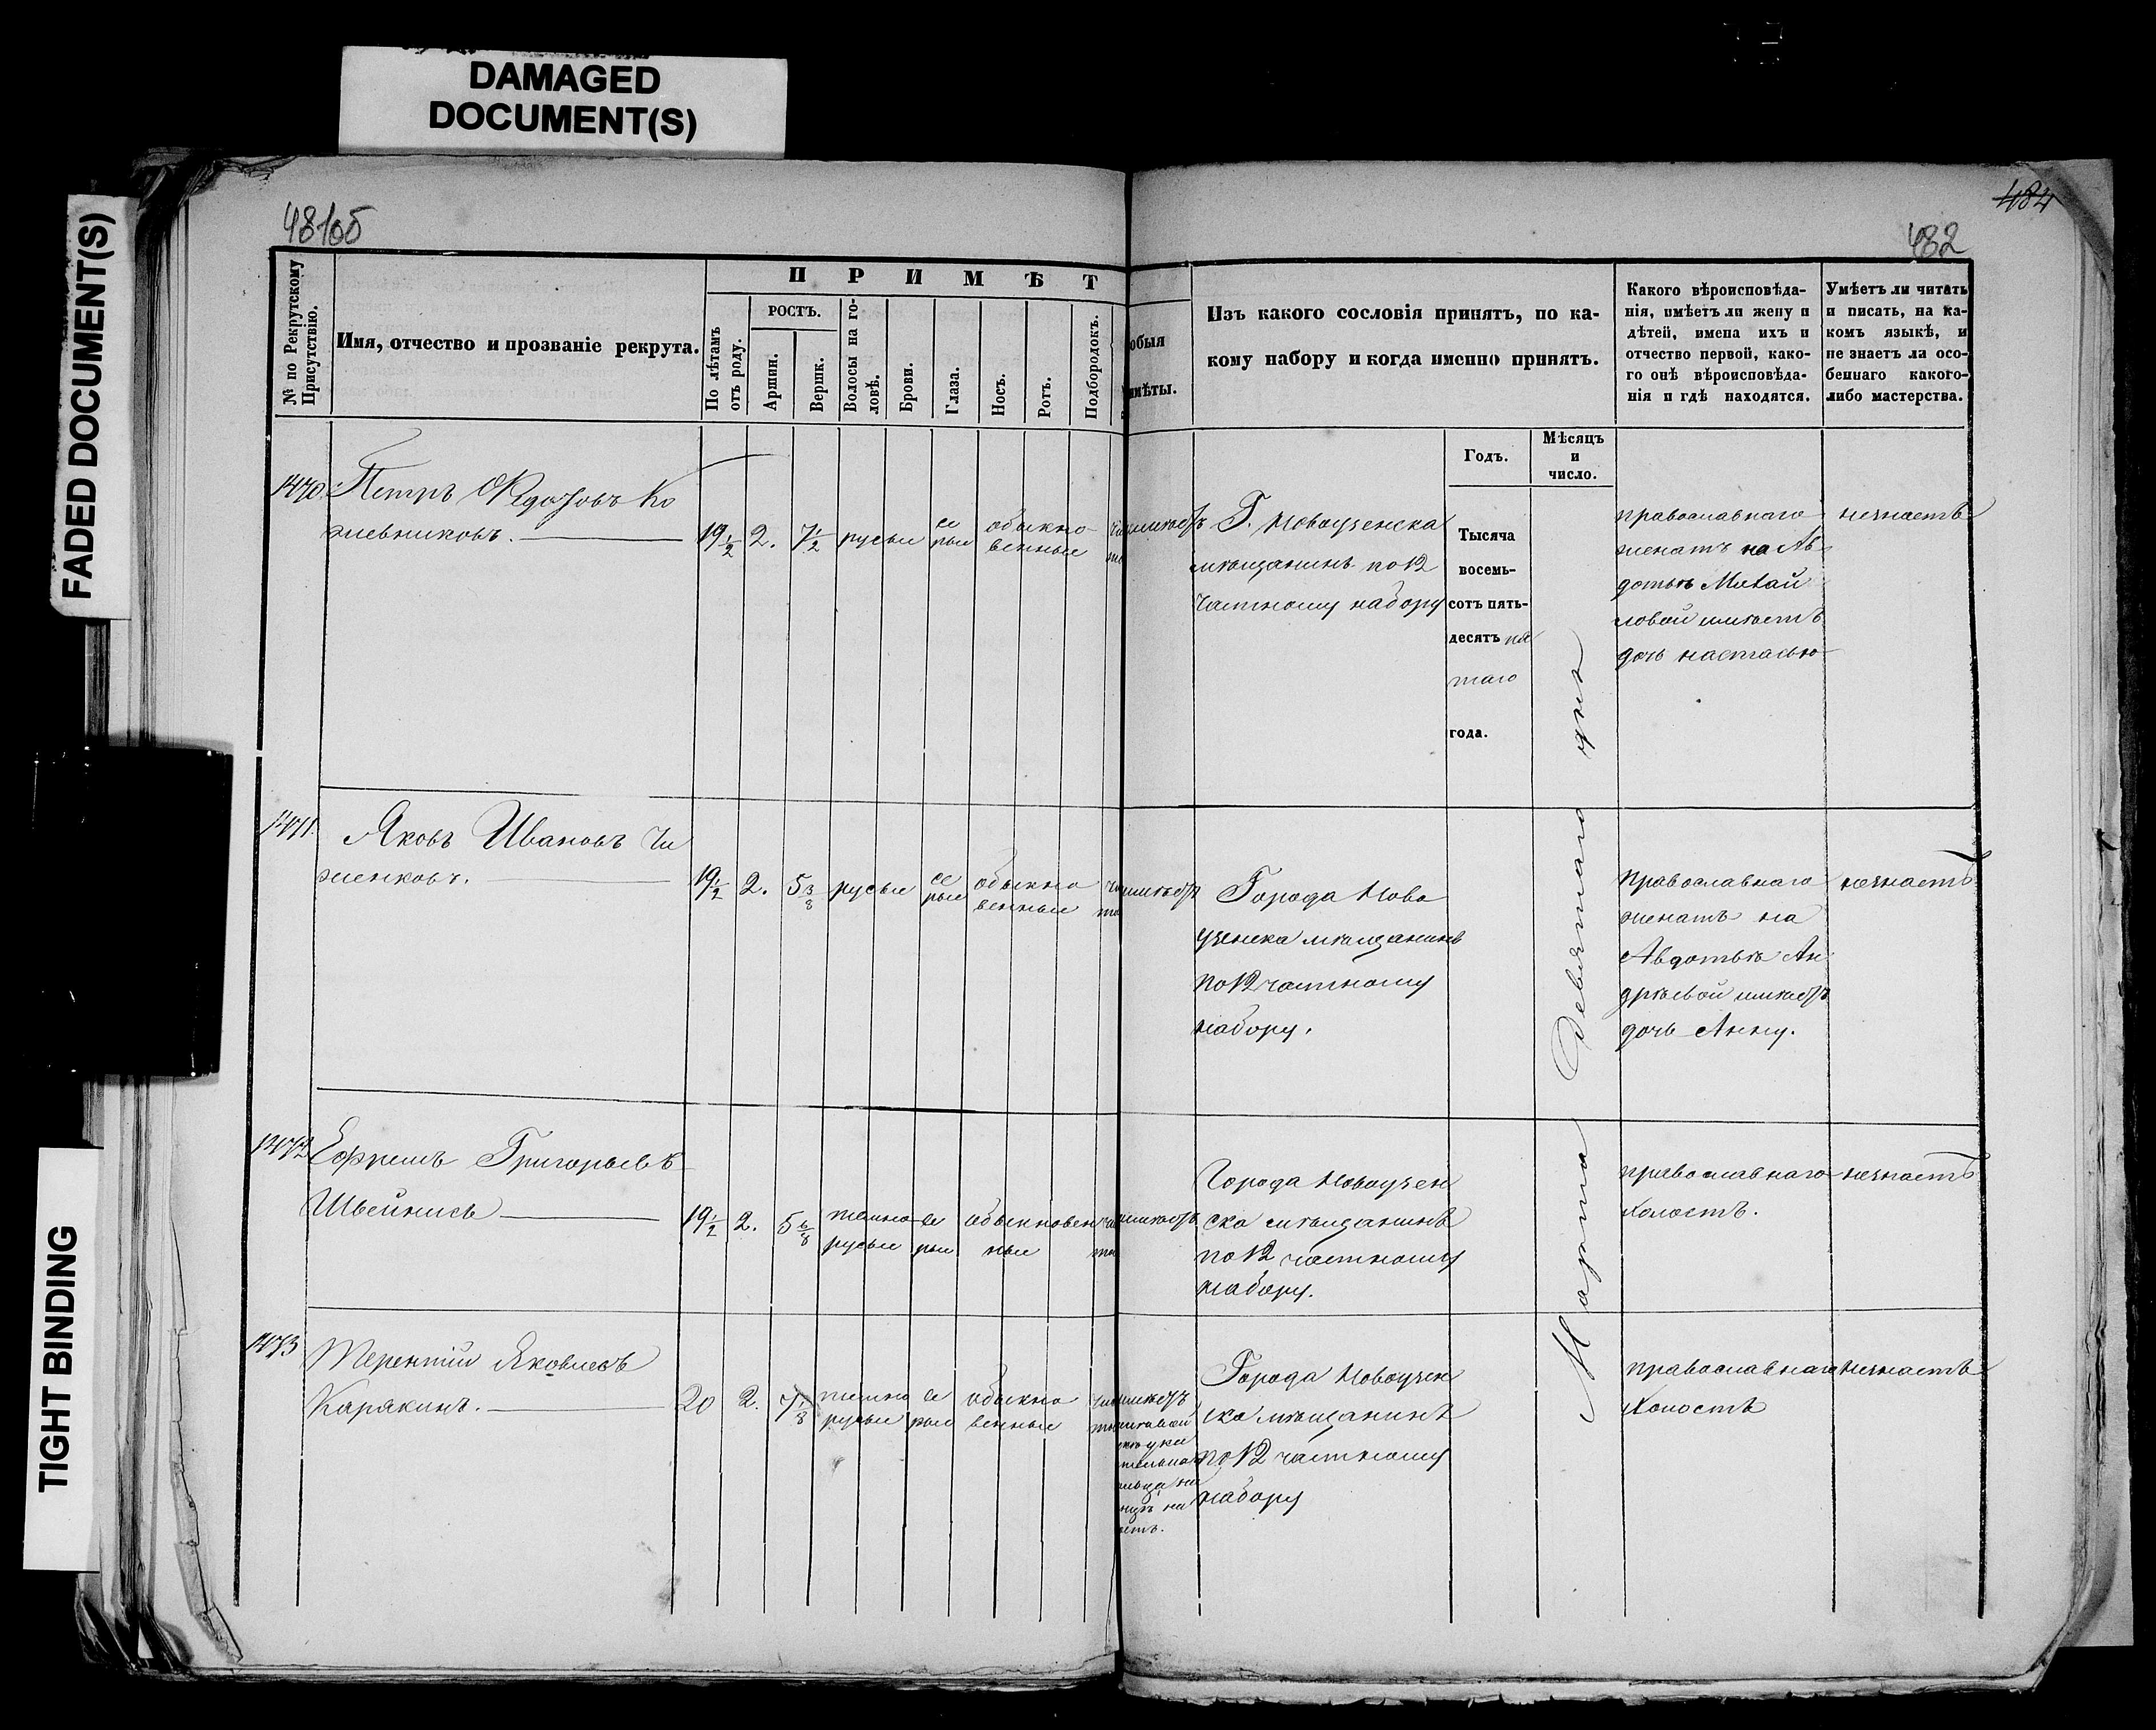 DAMAGED
DOCUMENT(S)
FADED DOCUMENT(S)
TIGHT BINDING
481об
484
482
№ по Рекрутскому
Присутствію.
Имя, отчество и прозваніе рекрута.
ПРИМѢТ
По лѣтамъ
отъ роду.
РОСТЪ.
Аршин.
Вершк.
Волосы на го-
ловѣ.
Брови.
Глаза.
Носъ.
Ротъ.
Подбородокъ.
обыя
имѣты.
Изъ какого сословія принятъ, по ка-
кому набору и когда именно принятъ.
Какого вѣроисповѣда-
нія, имѣетъ ли жену и
дѣтей, имена ихъ и
отчество первой, како-
го онѣ вѣроисповѣда-
нія и гдѣ находятся.
Умѣетъ ли читать
и писать, на ка-
комъ языкѣ, и
не знаетъ ли осо-
беннаго какого-
либо мастерства.
Годъ.
Мѣсяцъ
и
число.
1470.
Петръ Ѳедотовъ Ко
жевниковъ.
19 1/2
2.
7 1/2
русые
се
рые
обыкно
венные
Г. Новоузенска
мѣщанинъ по 12
частному набору
Тысяча
восемь-
сотъ пять-
десятъ пя
таго
года.
Марта девятаго дня
православнаго
женатъ на Ав
дотьѣ Михай
ловой имѣетъ
дочь Настасью
незнаетъ
1471.
Яковъ Ивановъ Чи
женковъ.
19 1/2
2.
5 3/8
русые
се
рые
обыкно
венные
Города Ново
узенска мѣщанинъ
по 12 частному
набору.
православнаго
женатъ на
Авдотьѣ Ан
дрѣевой имѣетъ
дочь Анну.
незнаетъ
1472
Ефремъ Григорьевъ
19 1/2
2.
5 6/8
темно
русые
се
рые
обыкновен
ные
Города Новоузен
ска мѣщанинъ
по 12 частному
набору.
православнаго
холостъ.
незнаетъ
1473
Терентій Яковлевъ
Каракинъ.
20
2.
7 1/8
темно
русые
се
рые
обыкно
венные
Города Новоузен
ска мѣщанинъ
по 12 частному
набору
православнаго
холостъ
незнаетъ